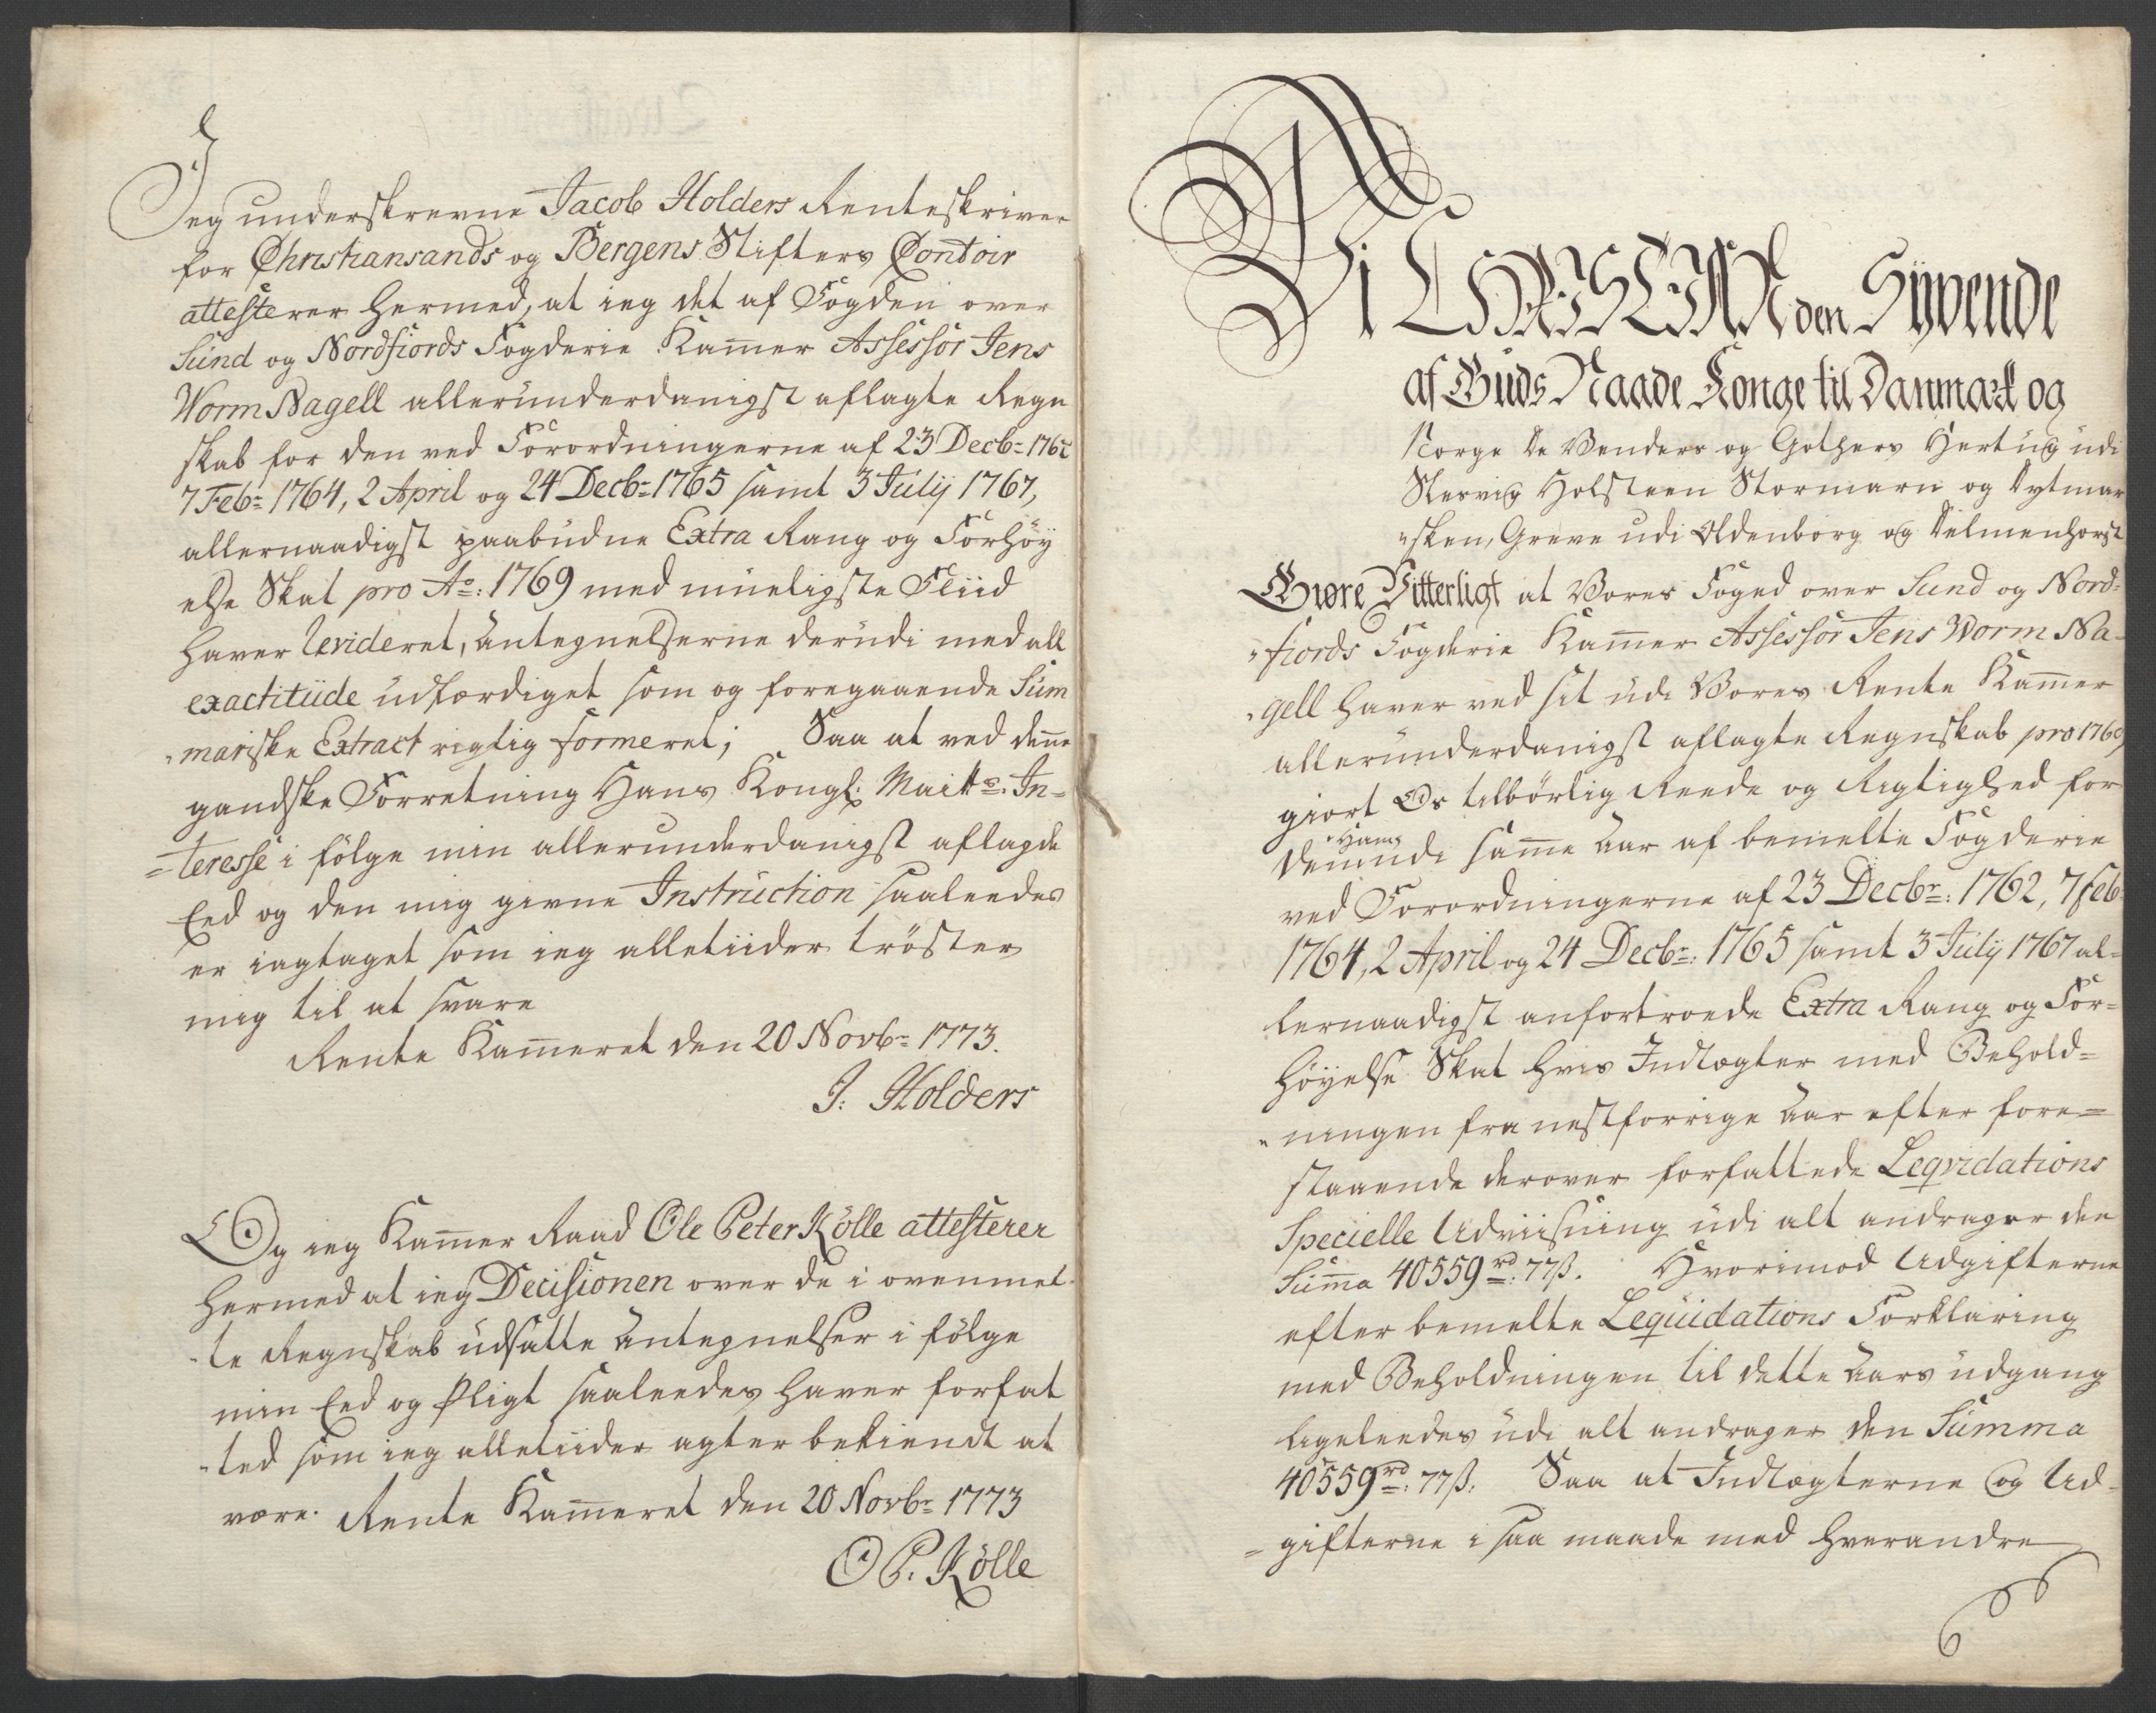 Jeg underskrevne Jacob Holders Renteskriver
for Christiansands og Bergens Stifters Contoir
attesterer hermed, at ieg det af Fogden over
Sund og Nordfiords Fogderie Kam̄er Assessor Jens
Worm Nagell allerunderdanigst aflagte Regn
skab for den ved Forordningerne af 23 Decb= 1762
7 Feb= 1764, 2 April og 24 Decb= 1765 samt 3 Julij 1767,
allernaadigst paabudne Extra Rang og Forhöy
else Skat pro Ao: 1769 med mueligste Fliid
haver Revideret, Antegnelserne derudi med all
exactitude udfærdiget som og foregaaende Sum
"mariske Extract rigtig formeret; Saa at ved den̄e
gandske Forretning Hans Kongl: Maitts: In=
=teresse i fölge min allerunderdanigst aflagde
Eed og den mig givne Instruction saaleedes
er iagtaget som ieg alletiider tröster
mig til at svare
Rente Kam̄eret den 20 Novb= 1773.
J: Holders
Og ieg Kam̄er Raad Ole Peter Kölle attesterer
hermed at ieg Decisionen over de i ovenmel
"te Regnskab udsatte Antegnelser i fölge
min Eed og Pligt saaleedes haver forfat
"ted som ieg alletiider agter bekiendt at
være. Rente Kam̄eret den 20 Novbr= 1773
O P. Kölle
Vi CHRISTIAN den Syvende
af Guds Naade Konge til Danmark og
Norge De Venders og Gothers Hertug udi
Slesvig Holsteen Stormarn og Dytmar
"sken, Greve udi Oldenborg og Delmenhorst
Giøre Vitterligt at Vores Foged over Sund og Nord=
"fiords Fogderie Kam̄er Assessor Jens Worm Na-
"gell haver ved sit udi Vores Rente Kam̄er
allerunderdanigst aflagte Regnskab pro 1769
giort Os tilbörlig Reede og Rigtighed for
Hans
Den̄nde sam̄e Aar af bemelte Fogderie
ved Forordningerne af 23 Decbr=: 1762, 7 Feb
1764, 2 April og 24 Decbr=: 1765 samt 3 Julij 1767 al=
lernaadigst anfortroede Extra Rang og For=
höyelse Skat hvis Indtægter med Behold=
"ningen fra nestforrige Aar efter fore=
staaende derover forfattede Leqvidations
Specielle Udviisning udi alt andrager den
Sum̄a 40559 rd: 77 ß. Hvorimod Udgifterne
efter bemelte Leqvidations Forklaring
med Beholdningen til dette Aars udgang
ligeleedes udi alt andrager den Summa
40559 rd: 77 ß. Saa at Indtægterne og Ud-
=gifterne i saa maade med hverandre